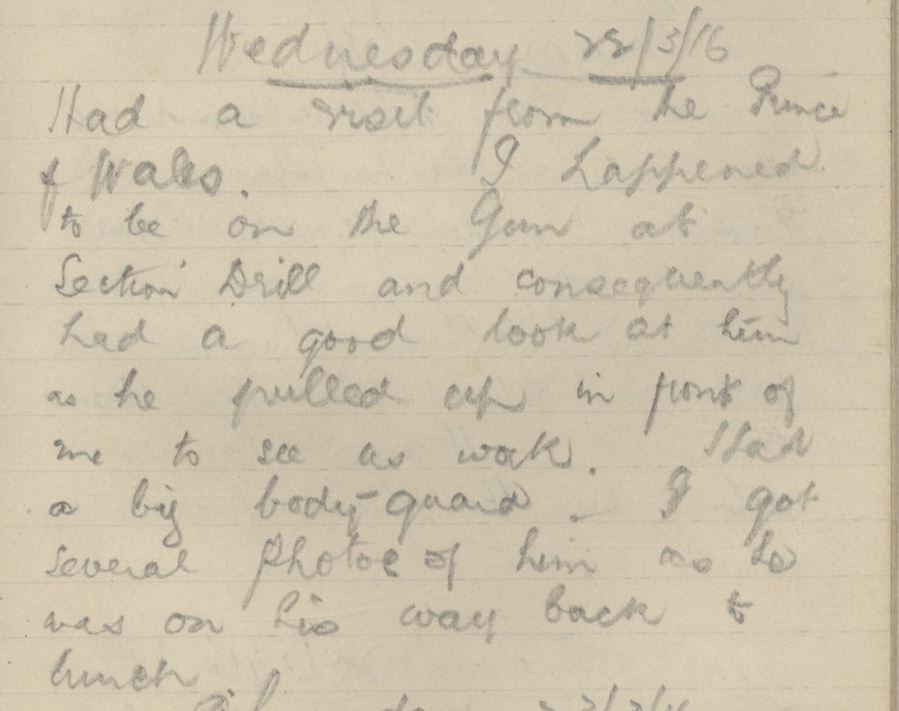 Wednesday 22/3/16
Had a visit from the Prince
of Wales. I happened
to be on the Gun at
Section Drill and consequently
had a good look at him
as he pulled up in front of
me to see us work. Had
a big body-guard. I got
several photos of him as he
was on his way back to
lunch